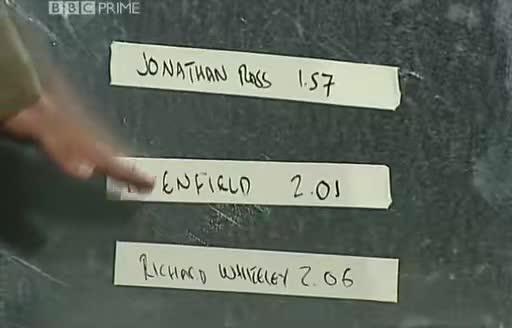 BBC PRIME
JONATHAN ROSS 1.57
ENFIELD 2.01
RICHARD WHITELEY 2.06